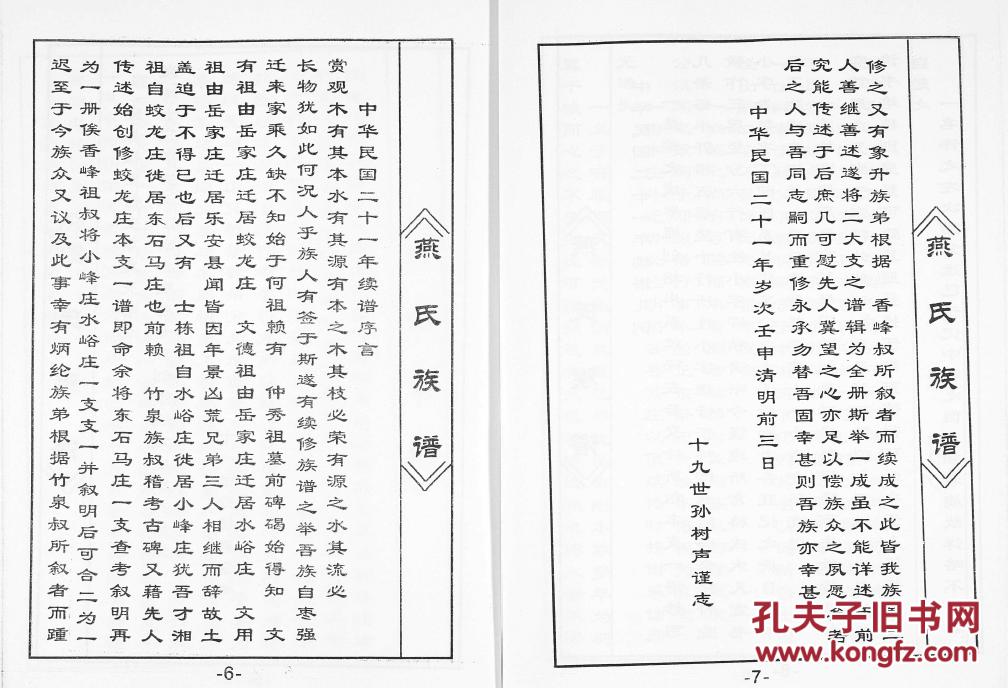 燕氏族谱
中华民国二十一年续谱序言
赏观木有其本水有其源有本之木其枝必荣有源之水其流必
长物犹如此何况人乎族人有签于斯遂有续修族谱之举吾族自枣强
迁来家乘久缺不知始于何祖赖有 仲秀祖墓前碑碣始得知 文
有祖由岳家庄迁居蛟龙庄 文德祖由岳家庄迁居水峪庄 文用
祖由岳家庄迁居乐安县闻皆因年景凶荒兄弟三人相继而辞故土
盖迫于不得已也后又有 士栋祖自水峪庄徙居小峰庄犹吾才湘
祖自蛟龙庄徙居东石马庄也前赖 竹泉族叔稽考古碑又藉先人
传述始创修蛟龙庄本支一谱即命余将东石马庄一支查考叙明再
为一册俟香峰祖叔将小峰庄水峪庄一支支一并叙明后可合二为一
迟至于今族众又议及此事幸有炳纶族弟根据竹泉叔所叙者而踵
-6-
燕氏族谱
修之又有象升族弟根据 香峰叔所叙者而续成之此皆我族
人善继善述遂将二大支之谱辑为全册斯举一成虽不能详述 前
究能传述于后庶几可慰先人冀望之心亦足以偿族众之夙愿 考
后之人与吾同志嗣而重修永承勿替吾固幸甚则吾族亦幸甚
中华民国二十一年岁次壬申清明前三日
十九世孙树声谨志
-7-
孔夫子旧书网
www.kongfz.com